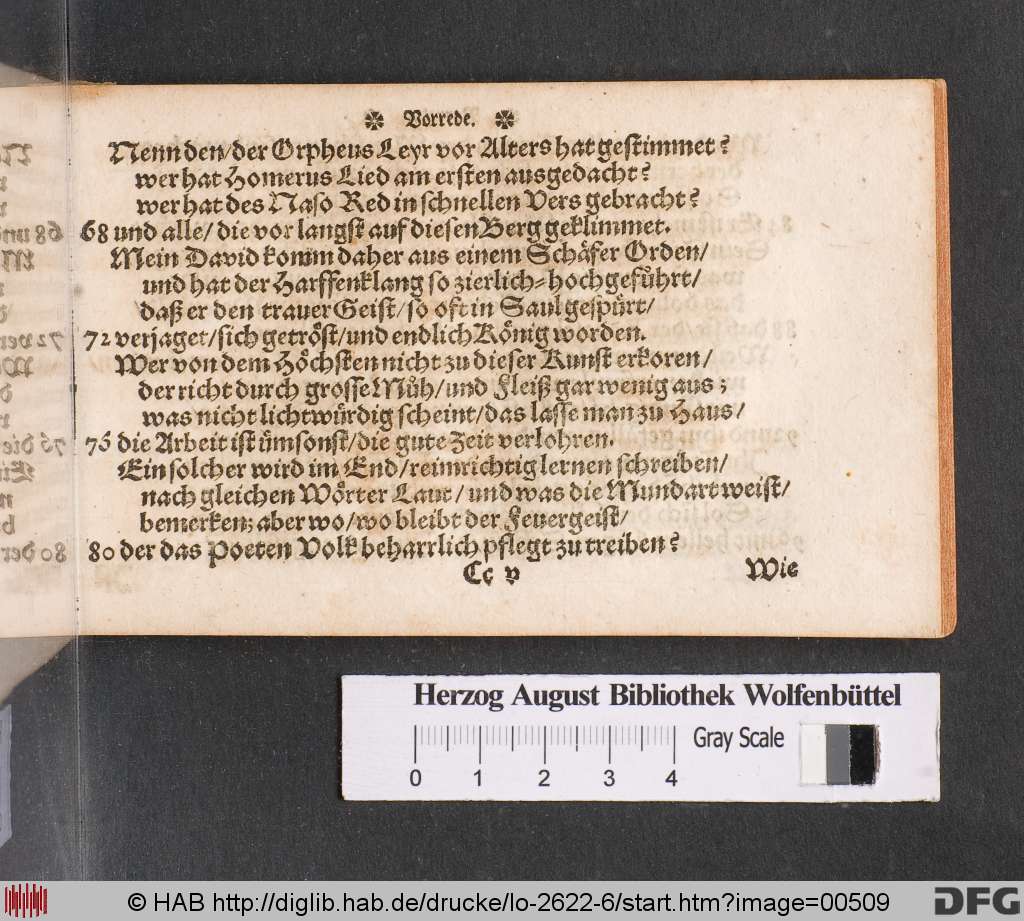 ✼ Vorrede. ✼
Nenn den/der Orpheus Leyr vor Alters hat gestimmet?
wer hat Homerus Lied am ersten ausgedacht?
wer hat des Naso Red in schnellen Vers gebracht?
68 und alle/ die vor langst auf diesen Berg geklimmet.
Mein David komm daher aus einem Schäfer Orden/
und hat der Harffenklang so zierlich-hochgeführt/
daß er den trauer Geist/so oft in Saul gespürt/
72 verjaget/sich getröst/und endlich König worden.
Wer von dem Höchsten nicht zu dieser Kunst erkoren/
der richt durch grosse Müh/und Fleiß gar wenig aus;
was nicht lichtwürdig scheint/das lasse man zu Haus/
76 die Arbeit ist ümsonst/die gute Zeit verlohren.
Ein solcher wird im End/reimrichtig lernen schreiben/
nach gleichen Wörter Laut/ und was die Mundart weist/
bemerken; aber wo/wo bleibt der Feuergeist/
80 der das Poeten Volk beharrlich pflegt zu treiben?
Cc v Wie
Herzog August Bibliothek Wolfenbüttel
0 1 2 3 4 Gray Scale
© HAB http://diglib.hab.de/drucke/lo-2622-6/start.htm?image=00509
DFG